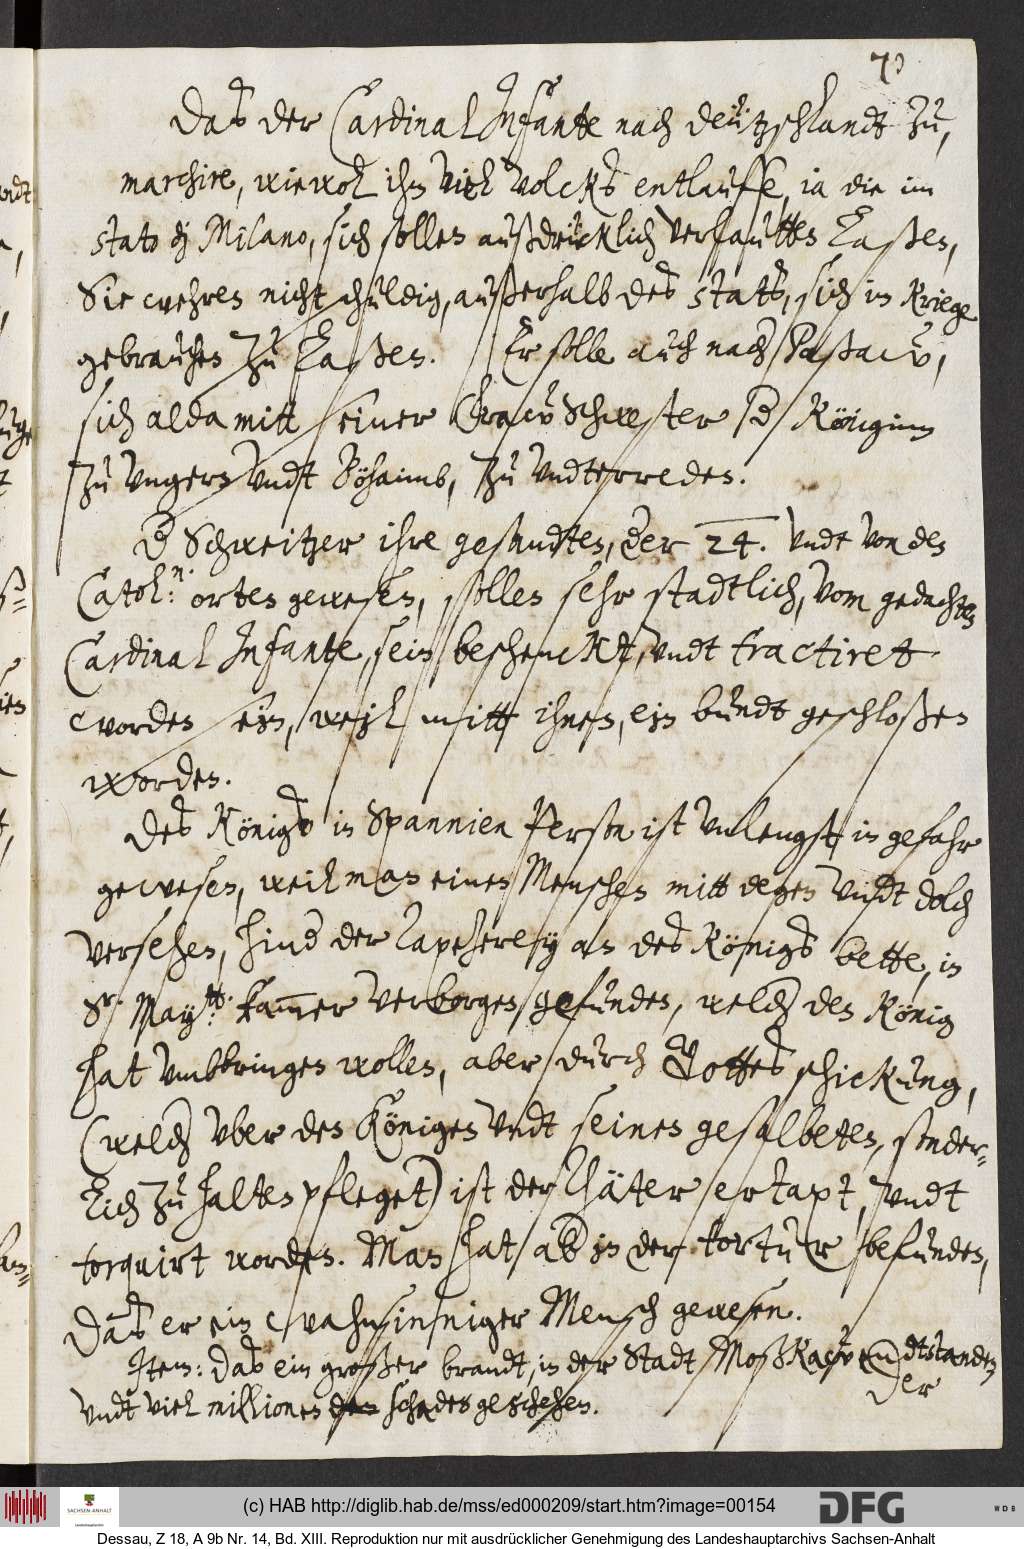 70
Das der Cardinal Infante nach deützschlandt zu,
marchire, wiewol ihm viel volcks entlauffe, ia die im
stato di Milano, sich sollen außdrücklich verlautten laßen,
Sie wehren nicht schuldig, außerhalb des stats, sich im Kriege
gebrauchen zu laßen. Er solle auch nach Paßaw,
sich alda mitt seiner fraw Schwester der Königinn
zu Ungern undt Böhaimb, zu undterreden.
Die Schweitzer ihre gesandten, der 24. undt von den
Catoln: orten gewesen, sollen sehr stadtlich, vom gedachten
Cardinal Infante, sein beschenckt, undt tractiret
worden sein, weil mitt ihnen, ein bundt geschloßen
worden.
Des Königs in Spannien Person ist unlengst in gefahr
gewesen, weil man einen Menschen mitt degen undt dolch
versehen, hinder der tapcherey an des Königs bette, in
Sr. Maytt: kammer verborgen gefunden, welcher den König
hat umbbringen wollen, aber durch Gottes schickung,
(welcher uber den Königen undt seinen gesalbeten, sonder-
lich zu halten pfleget) ist der thäter ertapt, undt
torquirt worden. Man hat aber in der tortur befunden,
das er ein wahnsinniger Mensch gewesen.
Item: Das ein großer brandt, in der Stadt Moßkaw endtstanden
der
undt viel millionen schaden geschehen.
(c) HAB http://diglib.hab.de/mss/ed000209/start.htm?image=00154
SACHSEN-ANHALT
DFG
WDB
Dessau, Z 18, A 9b Nr. 14, Bd. XIII. Reproduktion nur mit ausdrücklicher Genehmigung des Landeshauptarchivs Sachsen-Anhalt